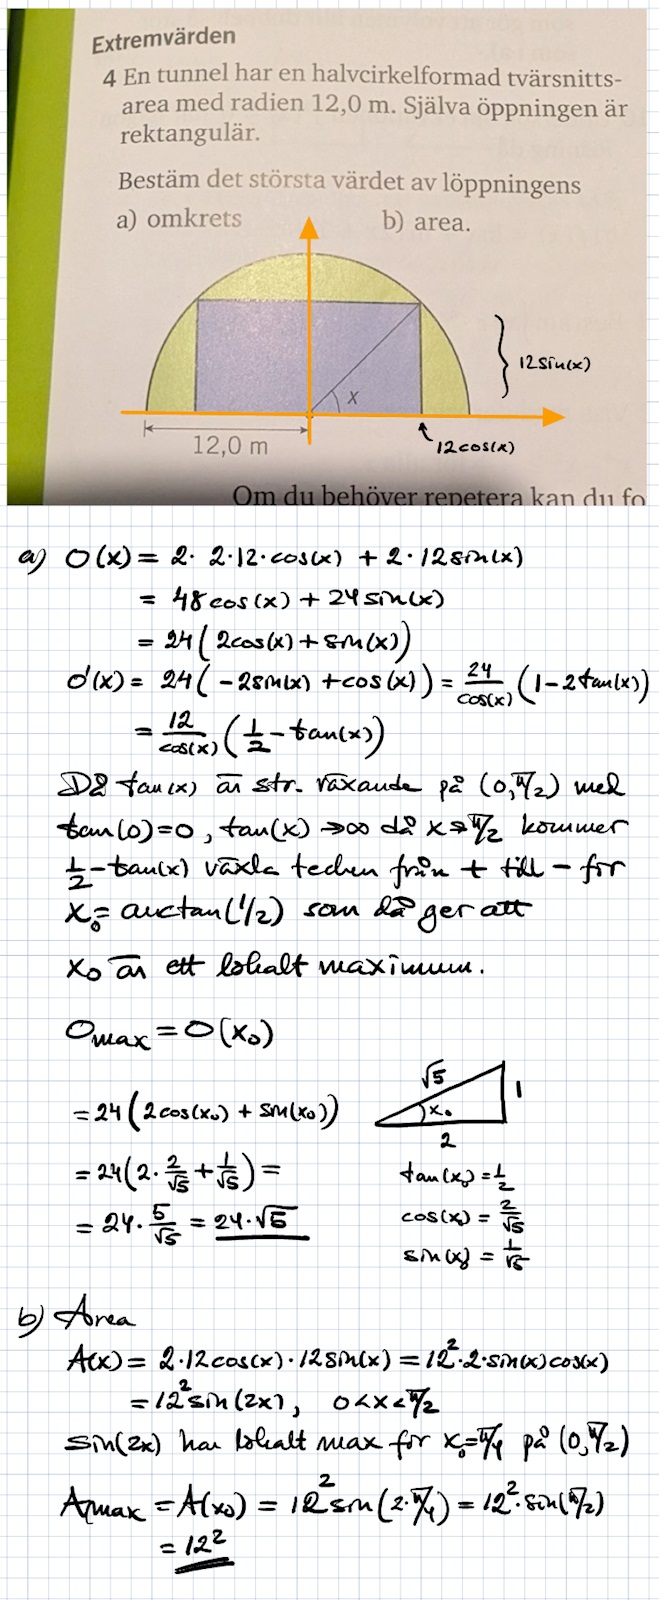 Extremvärden
4 En tunnel har en halvcirkelformad tvärsnitts-
area med radien 12,0 m. Själva öppningen är
rektangulär.
Bestäm det största värdet av löppningens
a) omkrets b) area.
12sin(x)
x
12,0 m
12cos(x)
Om du behöver repetera kan du fo
a) O(x) = 2· 2·12·cos(x) + 2·12sin(x)
= 48cos(x) + 24sin(x)
= 24(2cos(x)+sin(x))
O'(x) = 24(-2sin(x)+cos(x)) = 24/cos(x) (1-2tan(x))
= 12/cos(x) (1/2 - tan(x))
Då tan(x) är str. växande på (0,π/2) med
tan(0)=0, tan(x)→∞ då x→π/2 kommer
1/2-tan(x) växla tecken från + till - för
x₀= arctan(1/2) som då ger att
x₀ är ett lokalt maximum.
Omax = O(x₀)
= 24(2cos(x₀) + sin(x₀))
= 24(2·2/√5 + 1/√5) =
= 24·5/√5 = 24·√5
√5
1
x₀
2
tan(x₀) = 1/2
cos(x₀) = 2/√5
sin(x₀) = 1/√5
b) Area
A(x) = 2·12cos(x)·12sin(x) = 12²·2·sin(x)cos(x)
= 12²sin(2x), 0<x<π/2
sin(2x) har lokalt max för x₀=π/4 på (0,π/2)
Amax = A(x₀) = 12²sin(2·π/4) = 12²·sin(π/2)
= 12²